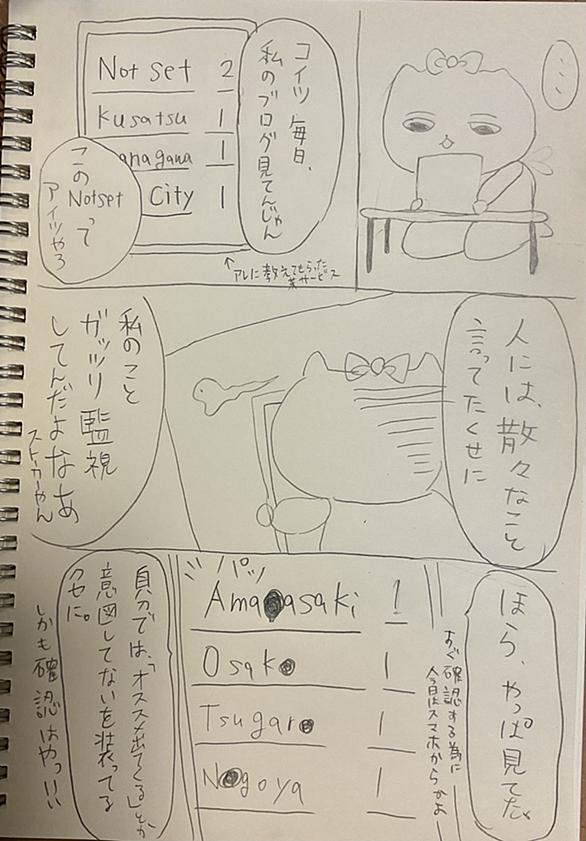 …
コイツ毎日、
私のブログ見てんじゃん
Not set 2
Kusatsu 1
anagana 1
City 1
この
Notsetって
アイツやろ
↑アレに教えてもらった
某サービス
人には、散々なこと
言ってたくせに
私のこと
ガッツリ監視
してんだよなあ
ストーカーやん
ほら、やっぱ見てた。
すぐ確認する為に
今日はスマホからかよ
パッ
Ama asaki 1
Osak 1
Tsugar 1
N goya 1
自分では、「オススメ出てくる」とか
意図してないを装ってる
クセに。
しかも確認はやっいい